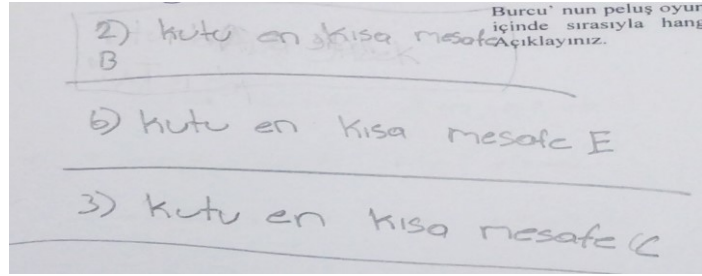 Burcu' nun peluş oyun
içinde sırasıyla hang
Açıklayınız.
2) kutu en kısa mesafe
B
6) kutu en kısa mesafe E
3) kutu en kısa mesafe C